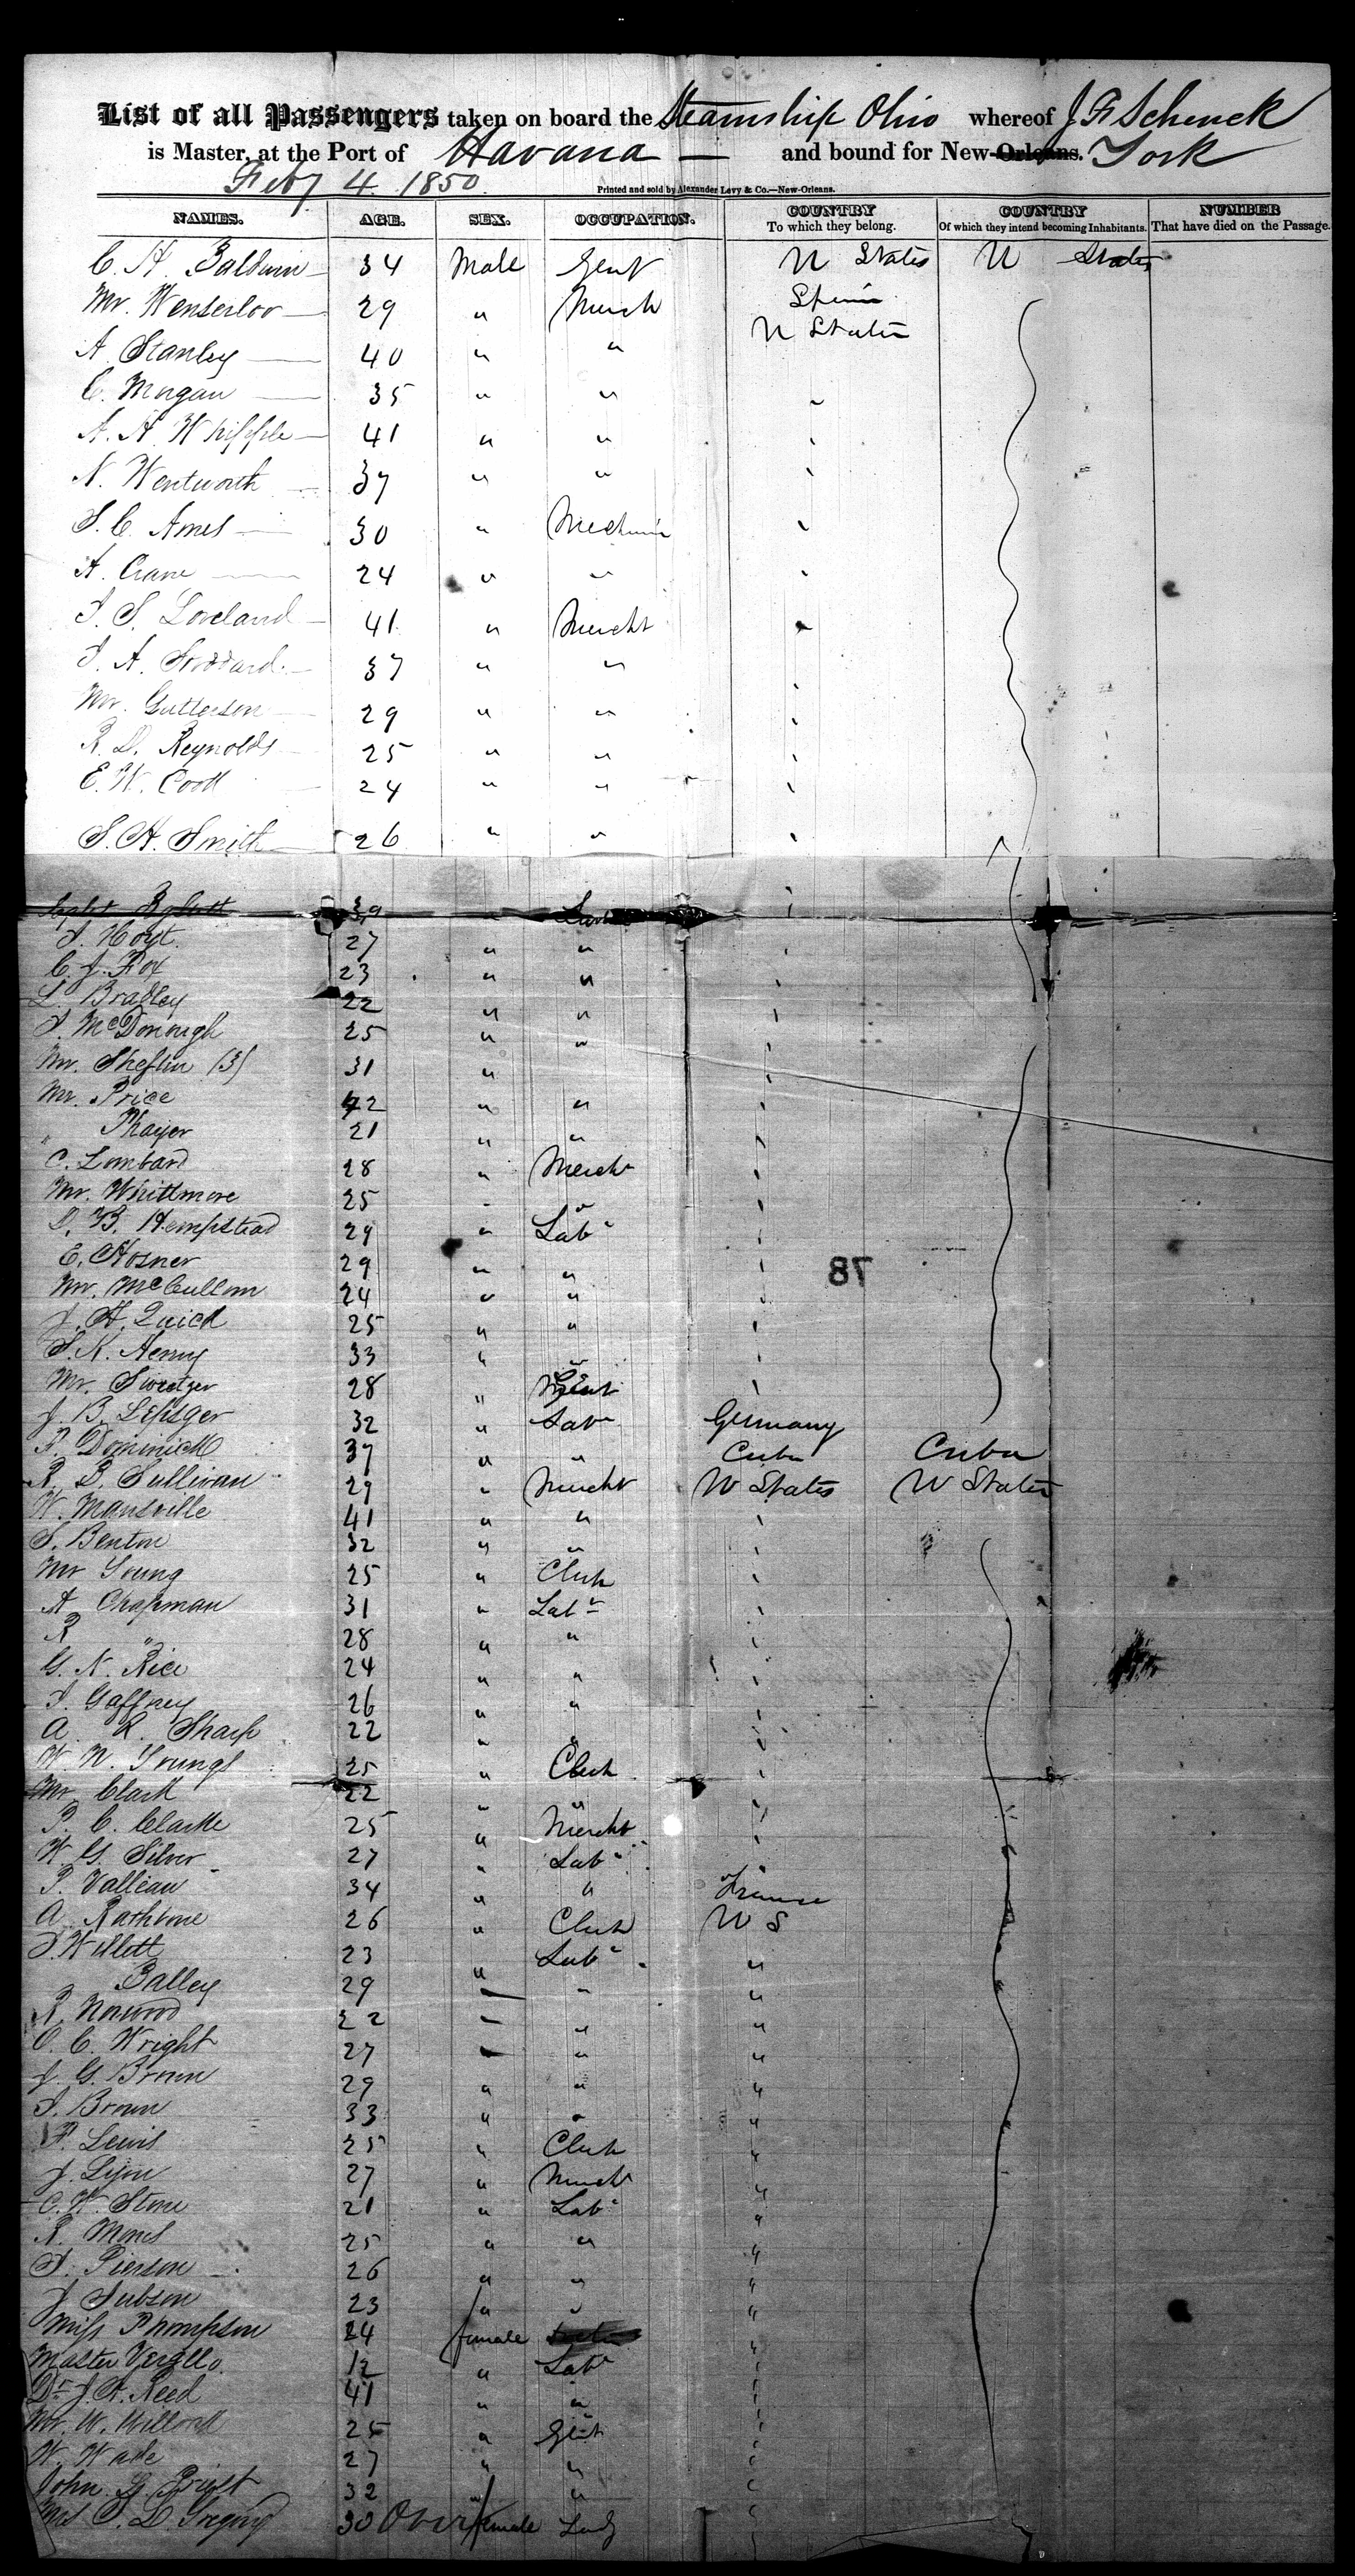 List of all Passengers taken on board the Steamship Ohio whereof J F Schenck
is Master, at the Port of Havana — and bound for New-Orleans. York
Feby 4 1850
Printed and sold by Alexander Levy & Co.—New-Orleans.
NAMES. AGE. SEX. OCCUPATION. COUNTRY To which they belong. COUNTRY Of which they intend becoming Inhabitants. NUMBER That have died on the Passage.
C. H. Baldwin 34 Male Gent U States U States
Mr. 29 " Merch Spain
A Stanley 40 " " U States
C. Morgan 35 " "
A. H Whipple 41 " "
N. Wentworth 37 " "
S. C. Ames 30 " Mechanic
A. Crane 24 " "
J. S. Loveland 41 " Mercht
J. A. Stoddard 37 " "
Mr. Gutterson 29 " "
R. D. Reynolds 25 " "
E. W. Cook 24 " "
S. H. Smith 26 " "
39 "
J. Hoyt 27 " "
C. J. Fox 23 " "
L. Bradley 22 " "
J. McDonough 25 " "
Mr. Sheflin (3) 31 "
Mr. Price 42 " "
" Thayer 21 " "
C. Lombard 28 " Mercht
Mr. Whittmore 25 " "
D. B. Hempstead 29 " Labr
E. Hosner 29 " "
78
Mr. McCullom 24 " "
J. H. Quick 25 " "
S. K. Henry 33 " "
Mr. Sweetzer 28 "
J. B. 32 " Labr Germany
F. Dominick 37 " " Cuba Cuba
R. B. Sullivan 29 " Mercht U States U States
W. Mansville 41 " "
S. Benton 32 " "
Mr Young 25 " Clerk
A Chapman 31 " Labr
R " 28 " "
G. N. Rice 24 " "
J. Gaffney 26 " "
A. R. Sharp 22 " "
W. N. Youngs 25 " Clerk
Mr. Clark 22 " "
P. C. Clarke 25 " Mercht
W G. Silver 27 " Labr
P. Valleau 34 " " France
A. Rathbone 26 " Clerk U S
J. Willett 23 " Labr "
Balley 29 " " "
R. Norwood 22 " " "
O. C. Wright 27 " " "
J. G. Brown 29 " " "
J. Brown 33 " " "
F. Lewis 25 " Clerk "
J. Lyon 27 " Mercht "
C. W. Stone 21 " Labr "
R. 25 " " "
J. Pierson 26 " " "
J 23 " " "
Miss Thompson 24 female "
Master 12 " Labr
Dr. J. A. Reed 41 " "
Mr. W. Willard 25 " Gent
W. Wade 27 " "
John G. Priest 32 " "
Mrs S. L. Gregory 30 Over female Lady